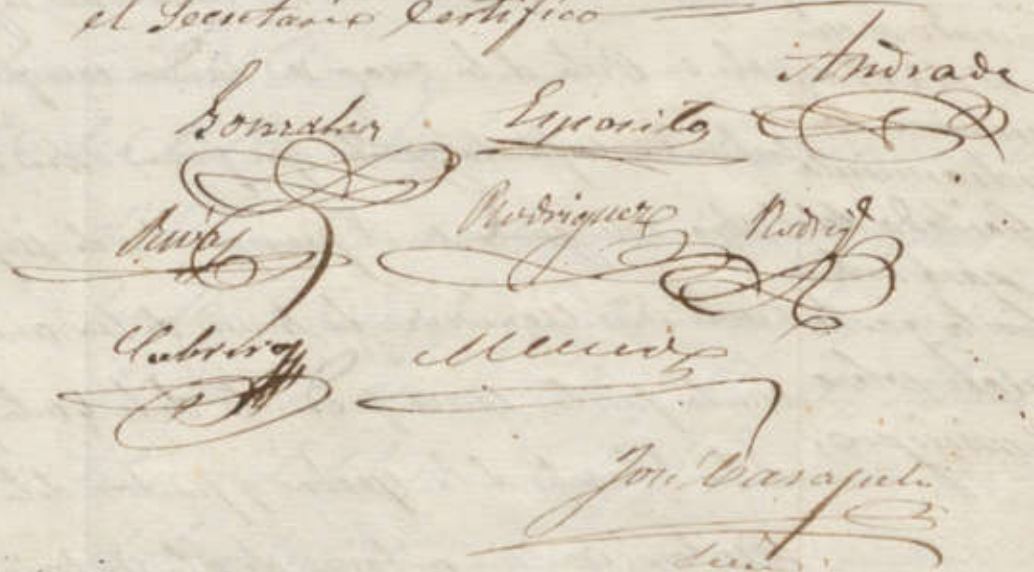 el Secretario Certifico
Andrade
Gonzalez Esposito
Rivas Rodriguez Rodrig
Cabrera Mend
José